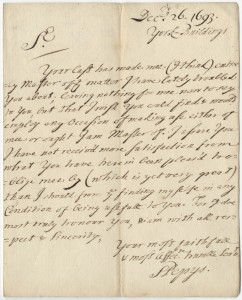 Decr. 26. 1693.
York Buildings
Sr.
Your last has made mee (I think) entire
Master of ye matter I have lately troubled
You about. Leaving nothing for mee now to say
to You, but that I wish You could find mee
employ any Occasion of making use either of
mee or ought I am Master of. I assure You
I have not received more Satisfaction from
what You have herein been pleased to
oblige mee by (which is yet very great)
than I should from ye finding my selfe in any
Condition of being usefull to You. For I do
most truly honour You, & am with all res-
pect & Sincerity,
Your most faithfull
& most affect. humble Serv.t
SPepys.